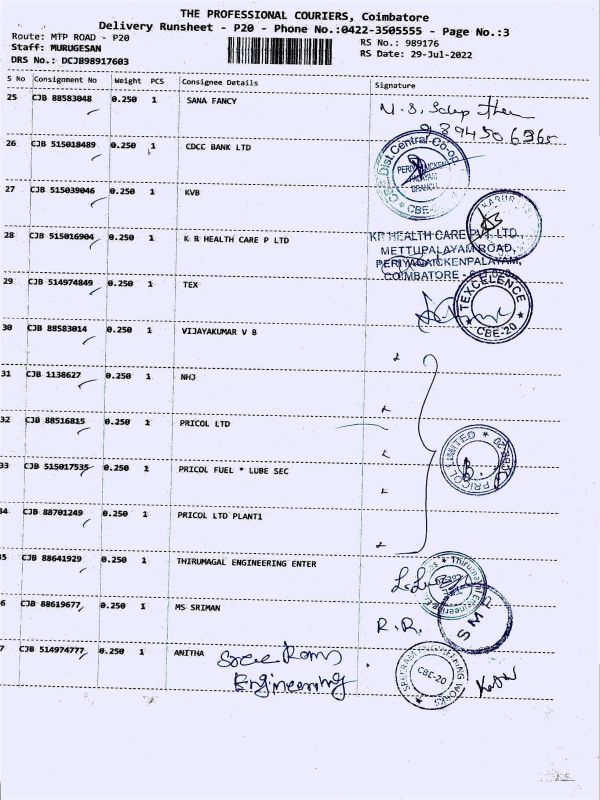 THE PROFESSIONAL COURIERS, Coimbatore
Delivery Runsheet - P20 - Phone No.:0422-3505555 - Page No.:3
Route: MTP ROAD - P20
RS No.: 989176
Staff: MURUGESAN
RS Date: 29-Jul-2022
DRS No.: DCJB98917603
S No Consignment No Weight PCS Consignee Details Signature
25 CJB 88583048 0.250 1 SANA FANCY
26 CJB 515018489 0.250 1 CDCC BANK LTD
27 CJB 515039046 0.250 1 KVB
28 CJB 515016904 0.250 1 K R HEALTH CARE P LTD
KR HEALTH CARE PVT. LTD.,
METTUPALAYAM ROAD,
PERIYANAICKENPALAYAM,
COIMBATORE
29 CJB 514974849 0.250 1 TEX
TEXCELENCE
CBE-20
30 CJB 88583014 0.250 1 VIJAYAKUMAR V B
31 CJB 1138627 0.250 1 NHJ
32 CJB 88516815 0.250 1 PRICOL LTD
PRICOL LIMITED
33 CJB 515017535 0.250 1 PRICOL FUEL * LUBE SEC
34 CJB 88701249 0.250 1 PRICOL LTD PLANT1
5 CJB 88641929 0.250 1 THIRUMAGAL ENGINEERING ENTER
6 CJB 88619677 0.250 1 MS SRIMAN
R.R.
SMP
7 CJB 514974777 0.250 1 ANITHA
Sree Ram
Engineering
CBE-20